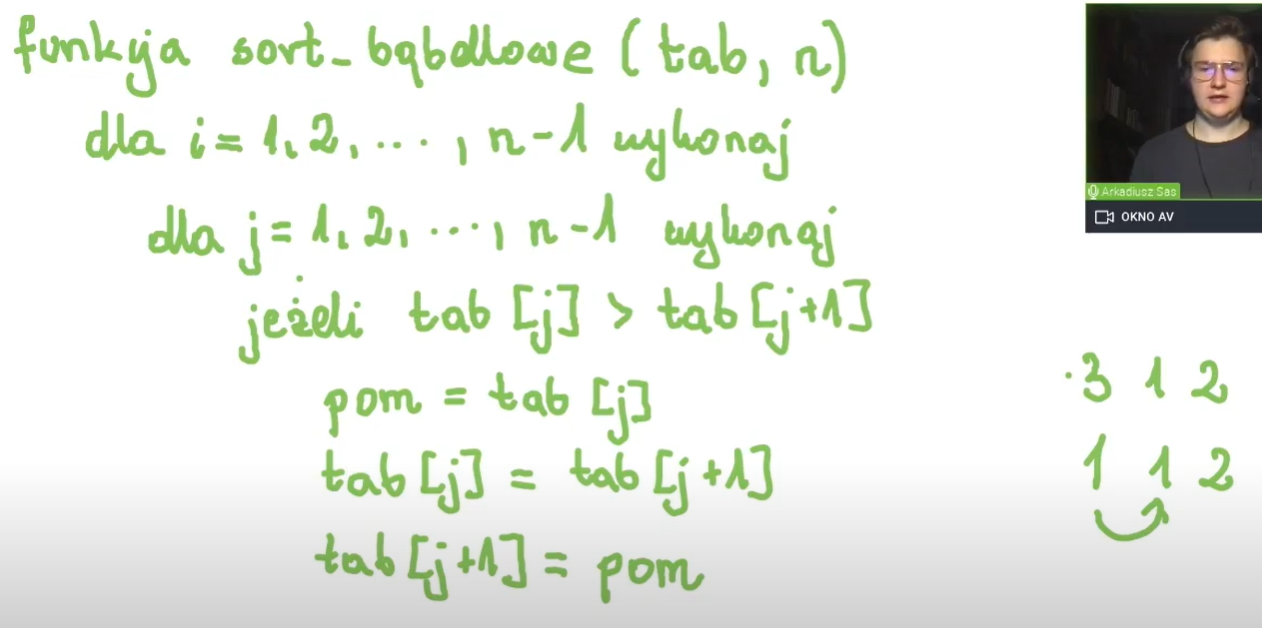 funkcja sort_bąbelkowe (tab, n)
dla i = 1, 2, ..., n-1 wykonaj
dla j = 1, 2, ..., n-1 wykonaj
jeżeli tab [j] > tab [j+1]
pom = tab [j]
tab [j] = tab [j+1]
tab [j+1] = pom
3 1 2
1 1 2
Arkadiusz Sas
OKNO AV